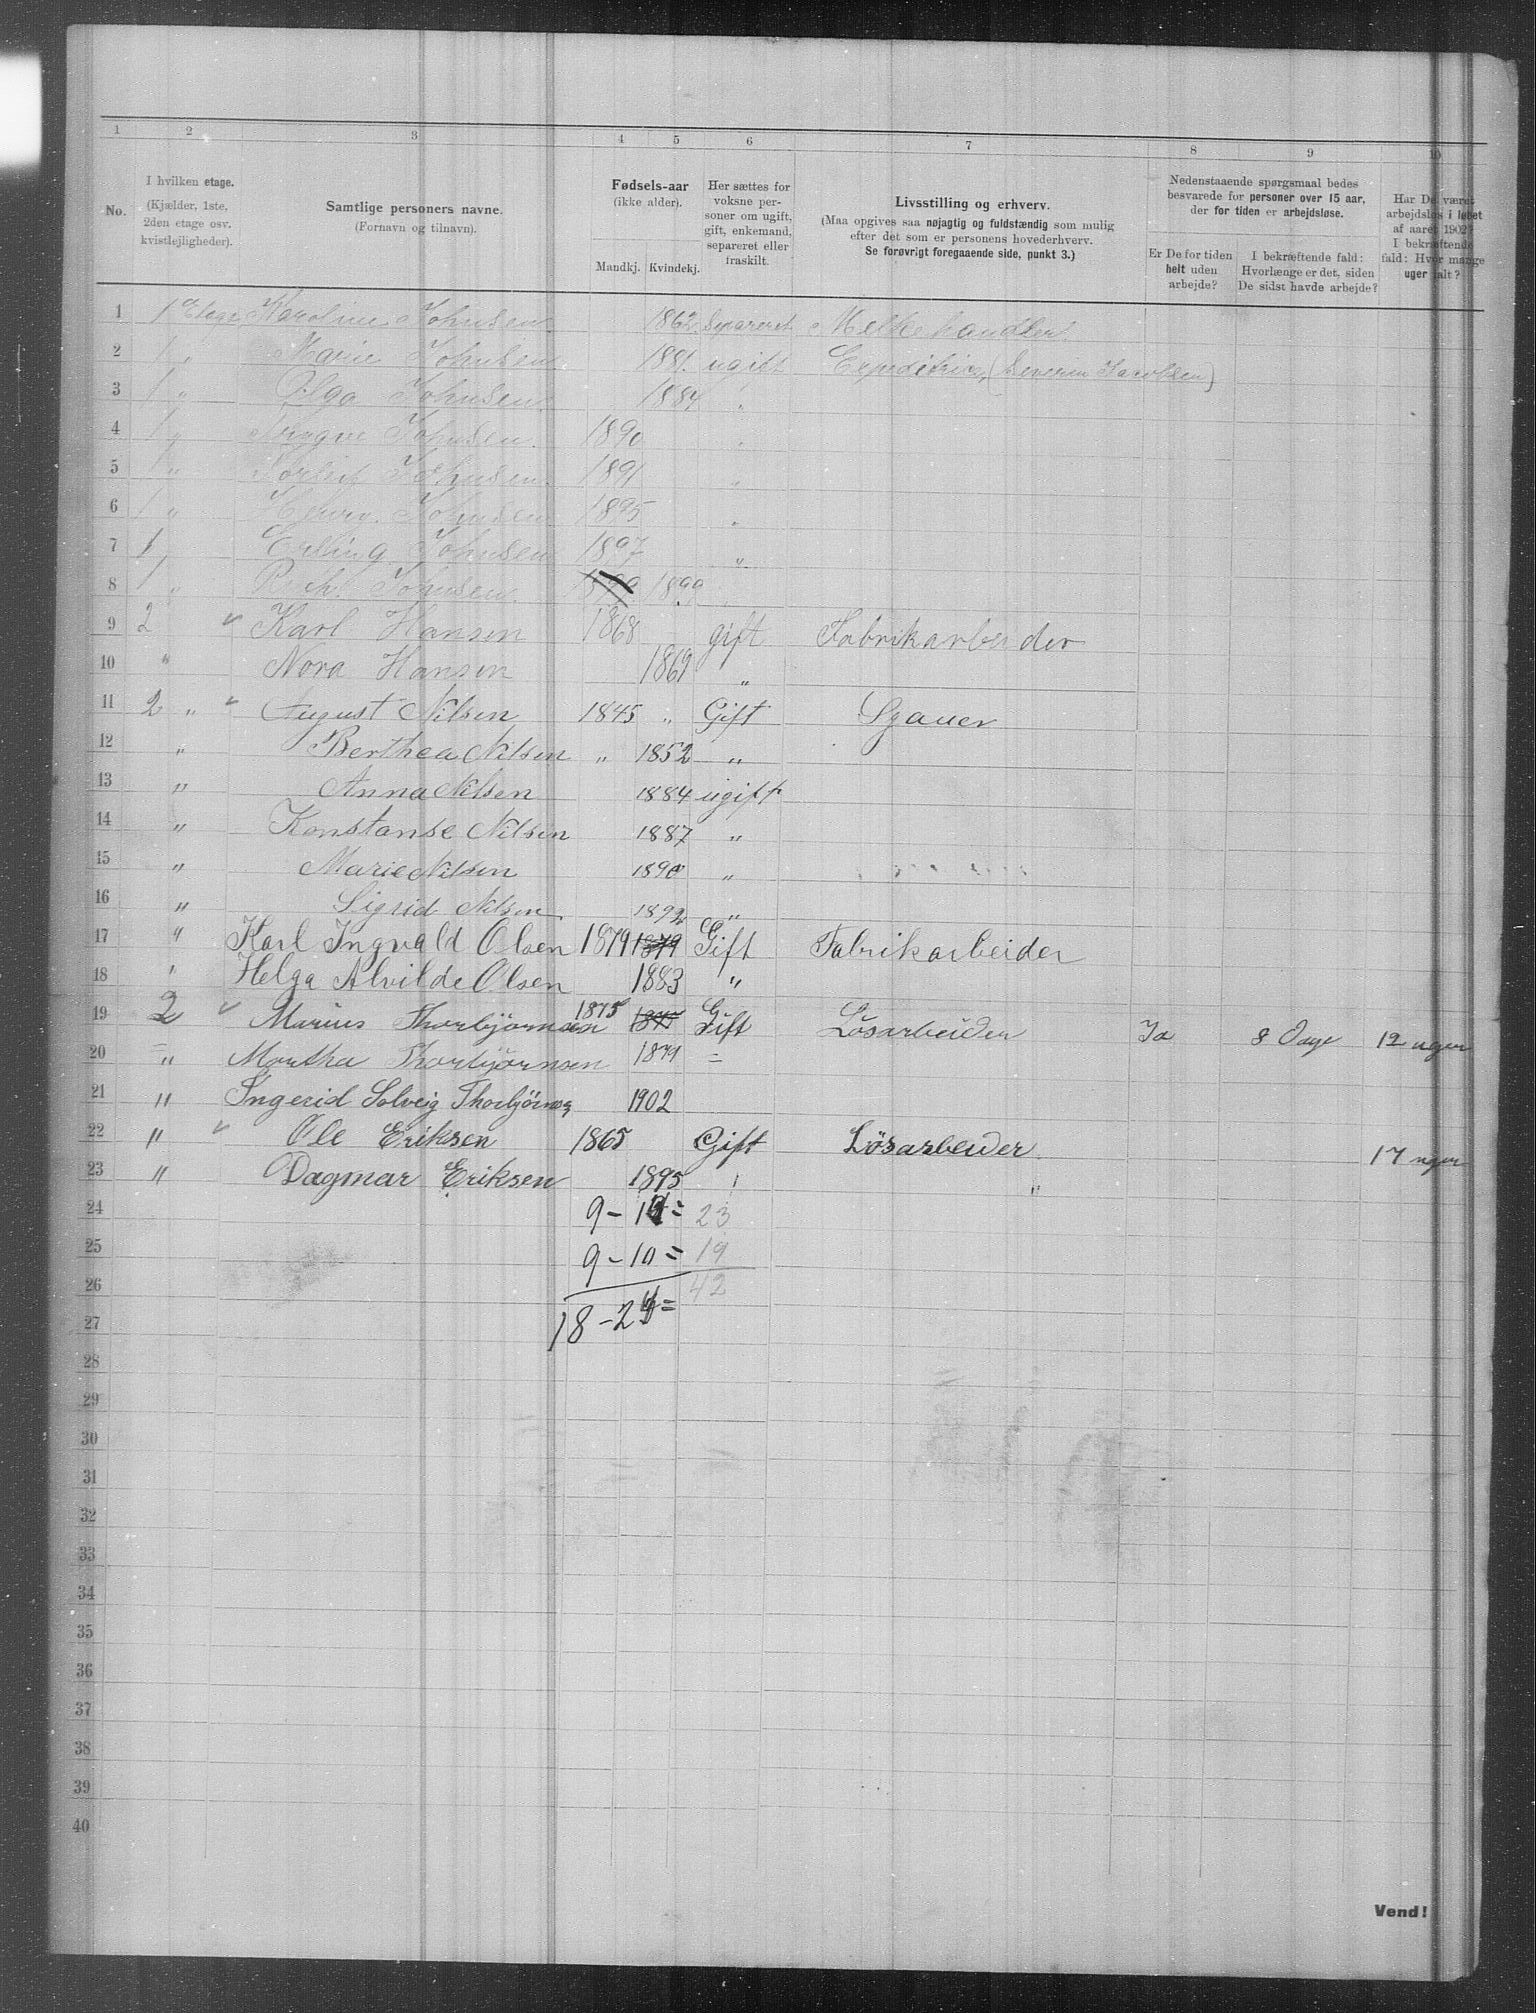 1 2 3 4 5 6 7 8 9 10
No.
I hvilken etage. (Kjælder, 1ste, 2den etage osv. kvistlejligheder).
Samtlige personers navne. (Fornavn og tilnavn).
Fødsels-aar (ikke alder). Mandkj. Kvindekj.
Her sættes for voksne personer om ugift, gift, enkemand, separeret eller fraskilt.
Livsstilling og erhverv. (Maa opgives saa nøjagtig og fuldstændig som mulig efter det som er personens hovederhverv. Se forøvrigt foregaaende side, punkt 3.)
Nedenstaaende spørgsmaal bedes besvarede for personer over 15 aar, der for tiden er arbejdsløse.
Er De for tiden helt uden arbejde?
I bekræftende fald: Hvorlænge er det, siden De sidst havde arbejde?
Har De været arbejdsløs i løbet af aaret 1902? I bekræftende fald: Hvor mange uger ialt?
1 1 Etage Karoline Johnsen 1862 Separeret Melkehandler
2 1 " Marie Johnsen 1881 ugift Expeditrice (Severin Jacobsen)
3 1 " Olga Johnsen 1884 "
4 1 " Trygve Johnsen 1890 "
5 1 " Johnsen 1891 "
6 1 " Johnsen 1895 "
7 1 " Erling Johnsen 1897 "
8 1 " Johnsen 1899 1899
9 2 Karl Hansen 1868 gift Fabrikarbeider
10 " Nora Hansen 1869 "
11 2 " August Nilsen 1845 " Gift
12 " Berthea Nilsen " 1852 "
13 " Anna Nilsen 1884 ugift
14 " Konstanse Nilsen 1887 "
15 " Marie Nilsen 1890 "
16 " Sigrid Nilsen 1892 "
17 " Karl Ingvald Olsen 1879 1879 Gift Fabrikarbeider
18 " Helga Alvilde Olsen 1883 "
19 2 Marius Thorbjörnsen 1875 1875 Gift Lösarbeider Ja 8 Dage 12 uger
20 " Martha Thorbjörnsen 1879 =
21 " Ingerid Solveig Thorbjörnsen 1902
22 " Ole Eriksen 1865 Gift Lösarbeider 17 uger
23 " Dagmar Eriksen 1895 " "
24 9 - 14 = 23
25 9 - 10 = 19
26 42
27 18 - 24 =
28
29
30
31
32
33
34
35
36
37
38
39
40
Vend!